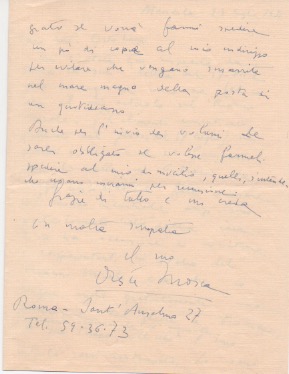 grato se vorrà farmi spedire
un po' di copie al mio indirizzo
per evitare che vengano smarrite
nel mare magno della posta di
un quotidiano.
Anche per l'invio dei volumi Le
sarei obbligato se volesse farmeli
spedire al mio domicilio, quelli, s'intende,
che devono inviarmi per recensione.
Grazie di tutto e mi creda
con molta simpatia
il suo
Roma - Sant' Anselmo 27
Tel. 59.36.73